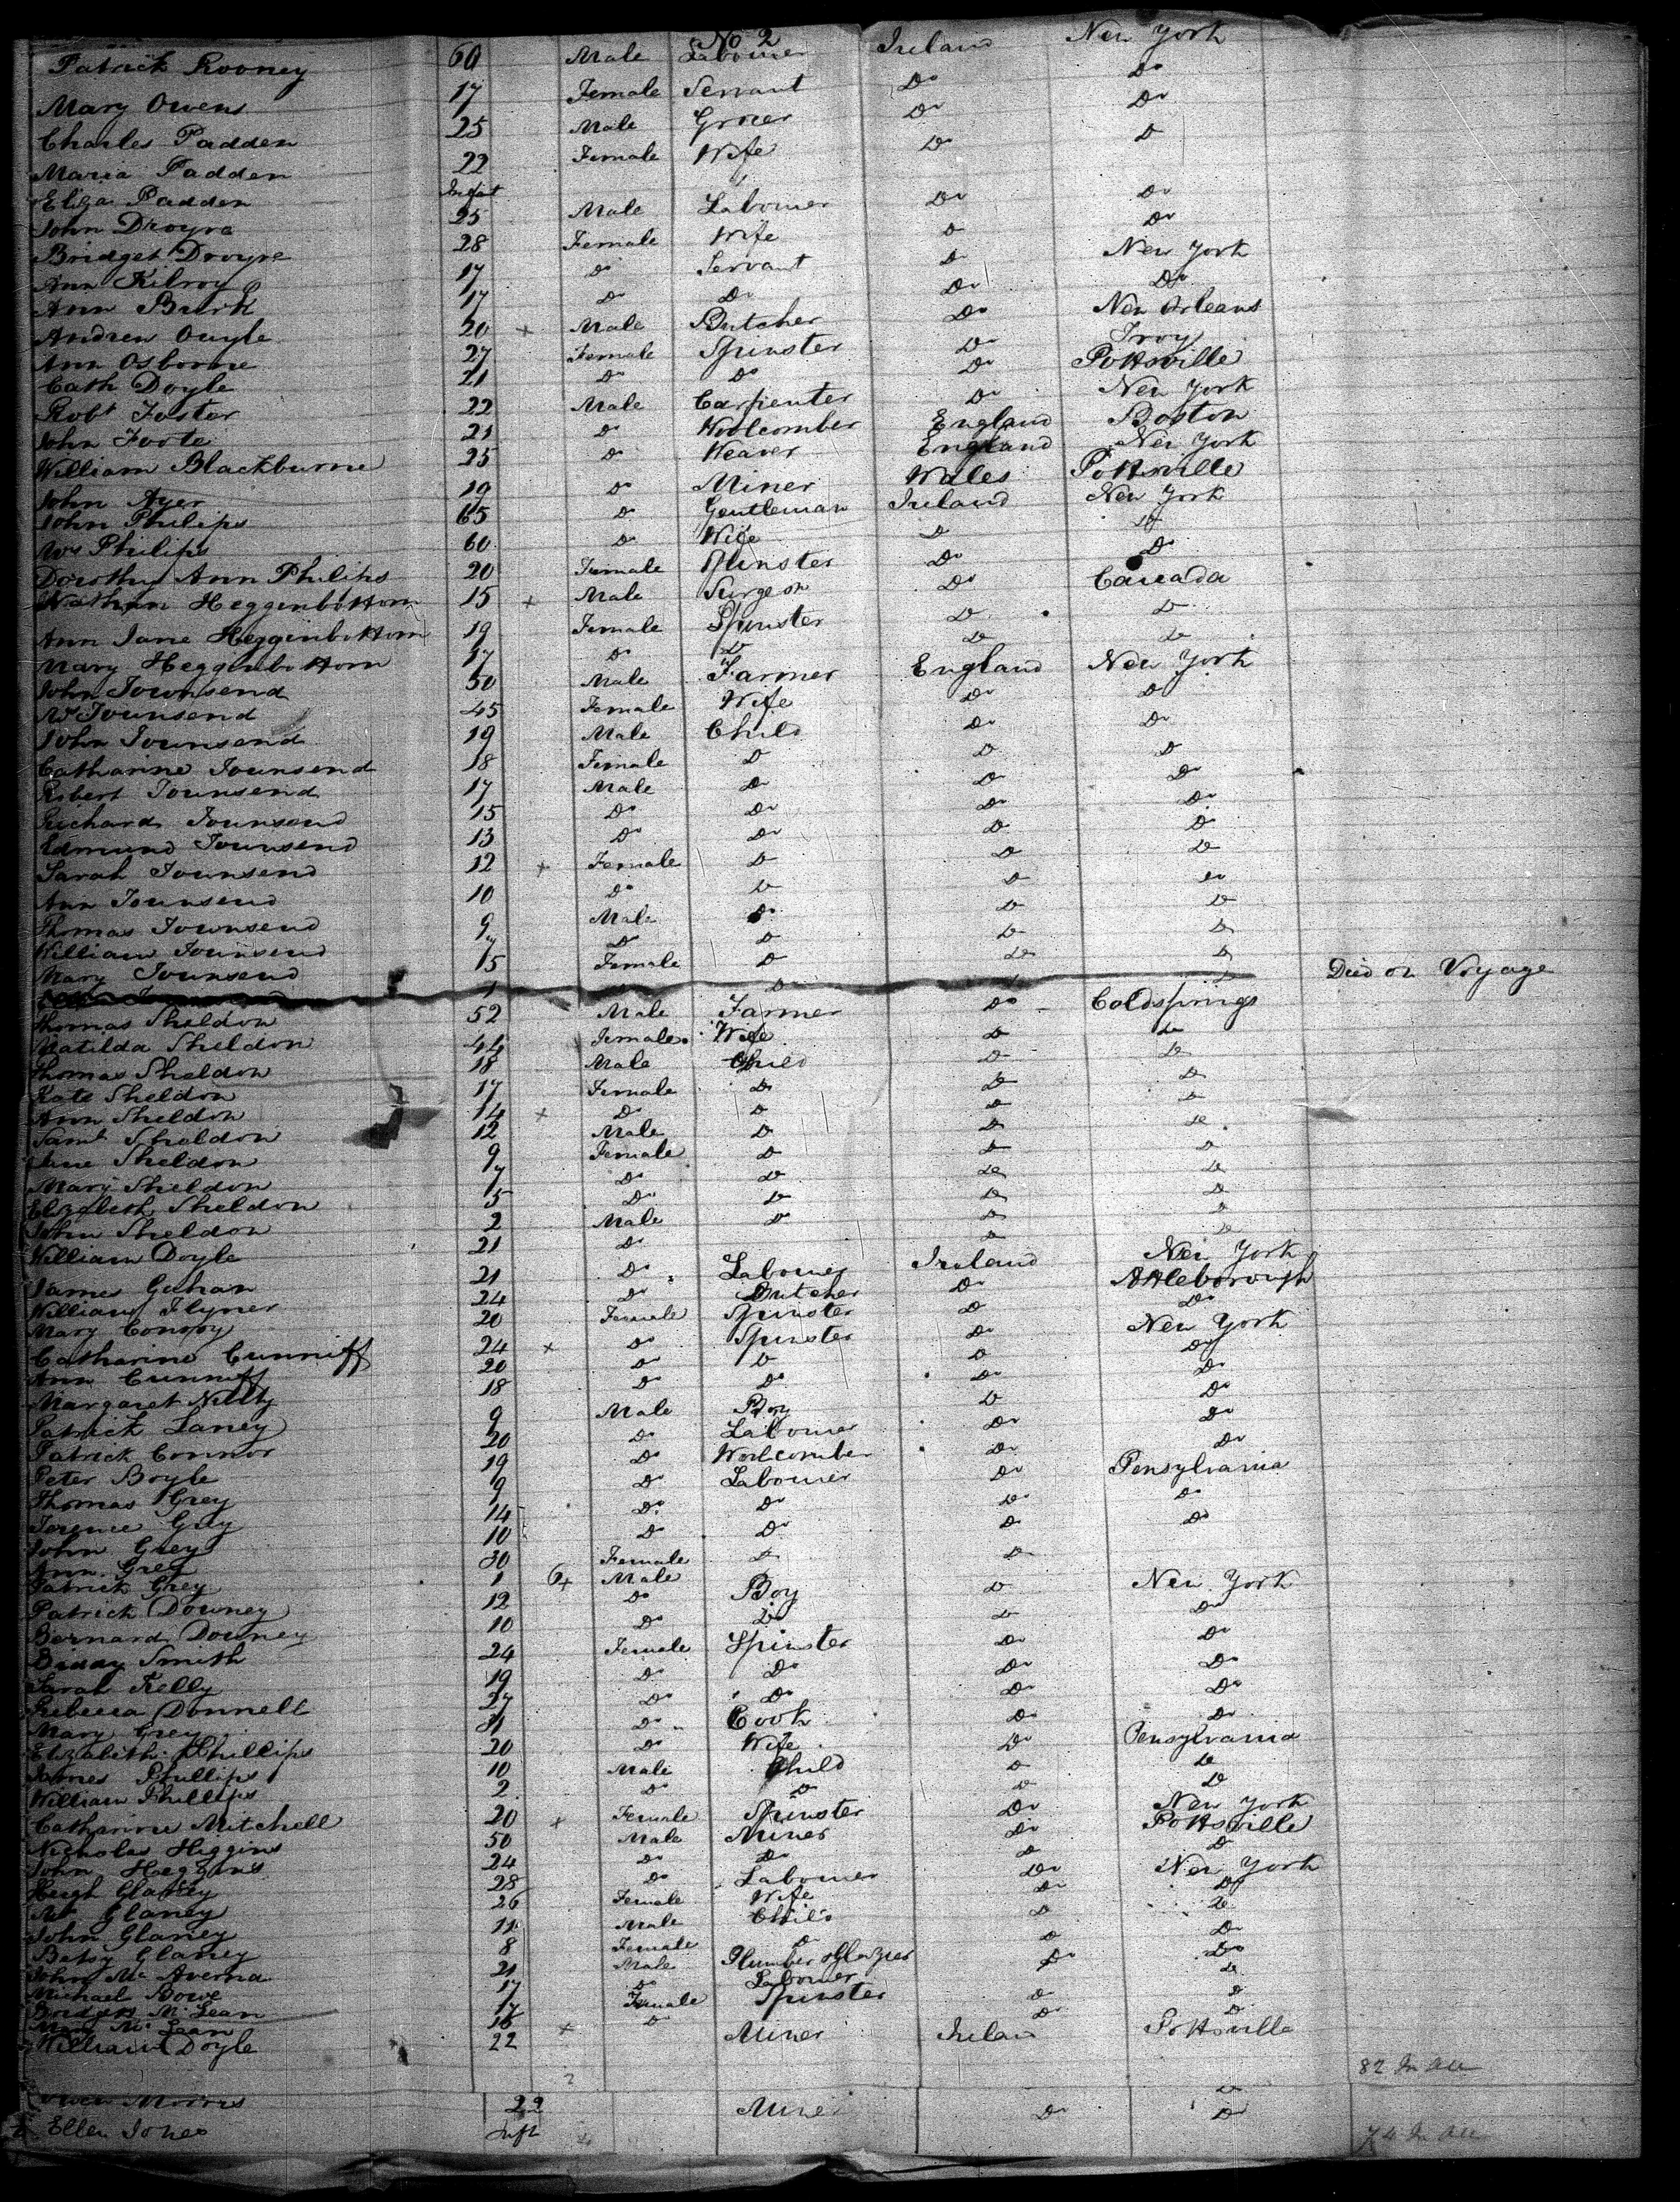 No 2
Patrick Rooney 60 Male Labourer Ireland New York
Mary Owens 17 Female Servant Do Do
Charles Padden 25 Male Grocer Do Do
Maria Padden 22 Female Wife Do Do
Eliza Padden Infant
John Droyre 25 Male Labourer Do Do
Bridget Droyre 28 Female Wife Do Do
Ann Kilroy 17 Do Servant Do New York
Ann Burk 17 Do Do Do Do
Andrew Ouyle 20 + Male Butcher Do New Orleans
Ann Osborne 27 Female Spinster Do Troy
Cath Doyle 21 Do Do Do Pottsville
Robt Foster 22 Male Carpenter Do New York
John Foote 21 Do Woolcomber England Boston
William Blackburne 25 Do Weaver England New York
John Ayer 19 Do Miner Wales Pottsville
John Philips 65 Do Gentleman Ireland New York
Mrs Philips 60 Do Wife Do Do
Dorothy Ann Philips 20 Female Spinster Do Do
Nathan Heggenbottom 15 + Male Surgeon Do Canada
Ann Jane Heggenbottom 19 Female Spinster Do Do
Mary Heggenbottom 17 Do Do Do Do
John Townsend 50 Male Farmer England New York
Mrs Townsend 45 Female Wife Do Do
John Townsend 19 Male Child Do Do
Catharine Townsend 18 Female Do Do Do
Robert Townsend 17 Male Do Do Do
Richard Townsend 15 Do Do Do Do
Edmund Townsend 13 Do Do Do Do
Sarah Townsend 12 + Female Do Do Do
Ann Townsend 10 Do Do Do Do
Thomas Townsend 9 Male Do Do Do
William Townsend 7 Do Do Do Do
Mary Townsend 15 Female Do Do Do
Townsend 1 Do Died on Voyage
Thomas Sheldon 52 Male Farmer Do Coldsprings
Matilda Sheldon 44 Female Wife Do Do
Thomas Sheldon 18 Male Child Do Do
Kate Sheldon 17 Female Do Do Do
Ann Sheldon 14 + Do Do Do Do
Saml Sheldon 12 Male Do Do Do
Jane Sheldon 9 Female Do Do Do
Mary Sheldon 7 Do Do Do Do
Elizabeth Sheldon 5 Do Do Do Do
John Sheldon 2 Male Do Do Do
William Doyle 21 Do Do Do
James Gahan 21 Do Labourer Ireland New York
William Flyner 24 Do Butcher Do Attleborough
Mary Conroy 20 Female Spinster Do Do
Catharine Cunniff 24 + Do Spinster Do New York
Ann Cunniff 20 Do Do Do Do
Margaret Nilty 18 Do Do Do Do
Patrick Laney 9 Male Boy Do Do
Patrick Connor 20 Do Labourer Do Do
Peter Boyle 19 Do Woolcomber Do Do
Thomas Grey 9 Do Labourer Do Pensylvania
Terence Grey 14 Do Do Do Do
John Grey 10 Do Do Do Do
Ann Grey 30 Female Do Do
Patrick Grey 1 6+ Male
Patrick Downey 12 Do Boy Do New York
Bernard Downey 10 Do Do Do Do
Biddy Smith 24 Female Spinster Do Do
Sarah Kelly 19 Do Do Do Do
Rebecca Donnell 27 Do Do Do Do
Mary Grey 31 Do Cook Do Do
Elizabeth Phillips 20 Do Wife Do Pensylvania
James Phillips 10 Male Child Do Do
William Phillips 2 Do Do Do Do
Catharine Mitchell 20 + Female Spinster Do New York
Nicholas Higgins 50 Male Miner Do Pottsville
John Heggins 24 Do Do Do Do
Hugh Glaney 28 Do Labourer Do New York
Mrs Glaney 26 Female Wife Do Do
John Glaney 11 Male Child Do Do
Betsy Glaney 8 Female Do Do Do
John Mc Averna 21 Male Plumber & Glazier Do Do
Michael Bowe 17 Do Labourer Do
Bridget Mc Lean 17 Female Spinster Do Do
Mary Mc Lean 16 + Do Do Do
William Doyle 22 Miner Irelan Pottsville
82 In all
Owen Morris 22 Miner Do
Ellen Jones Inft Do Do
74 In all